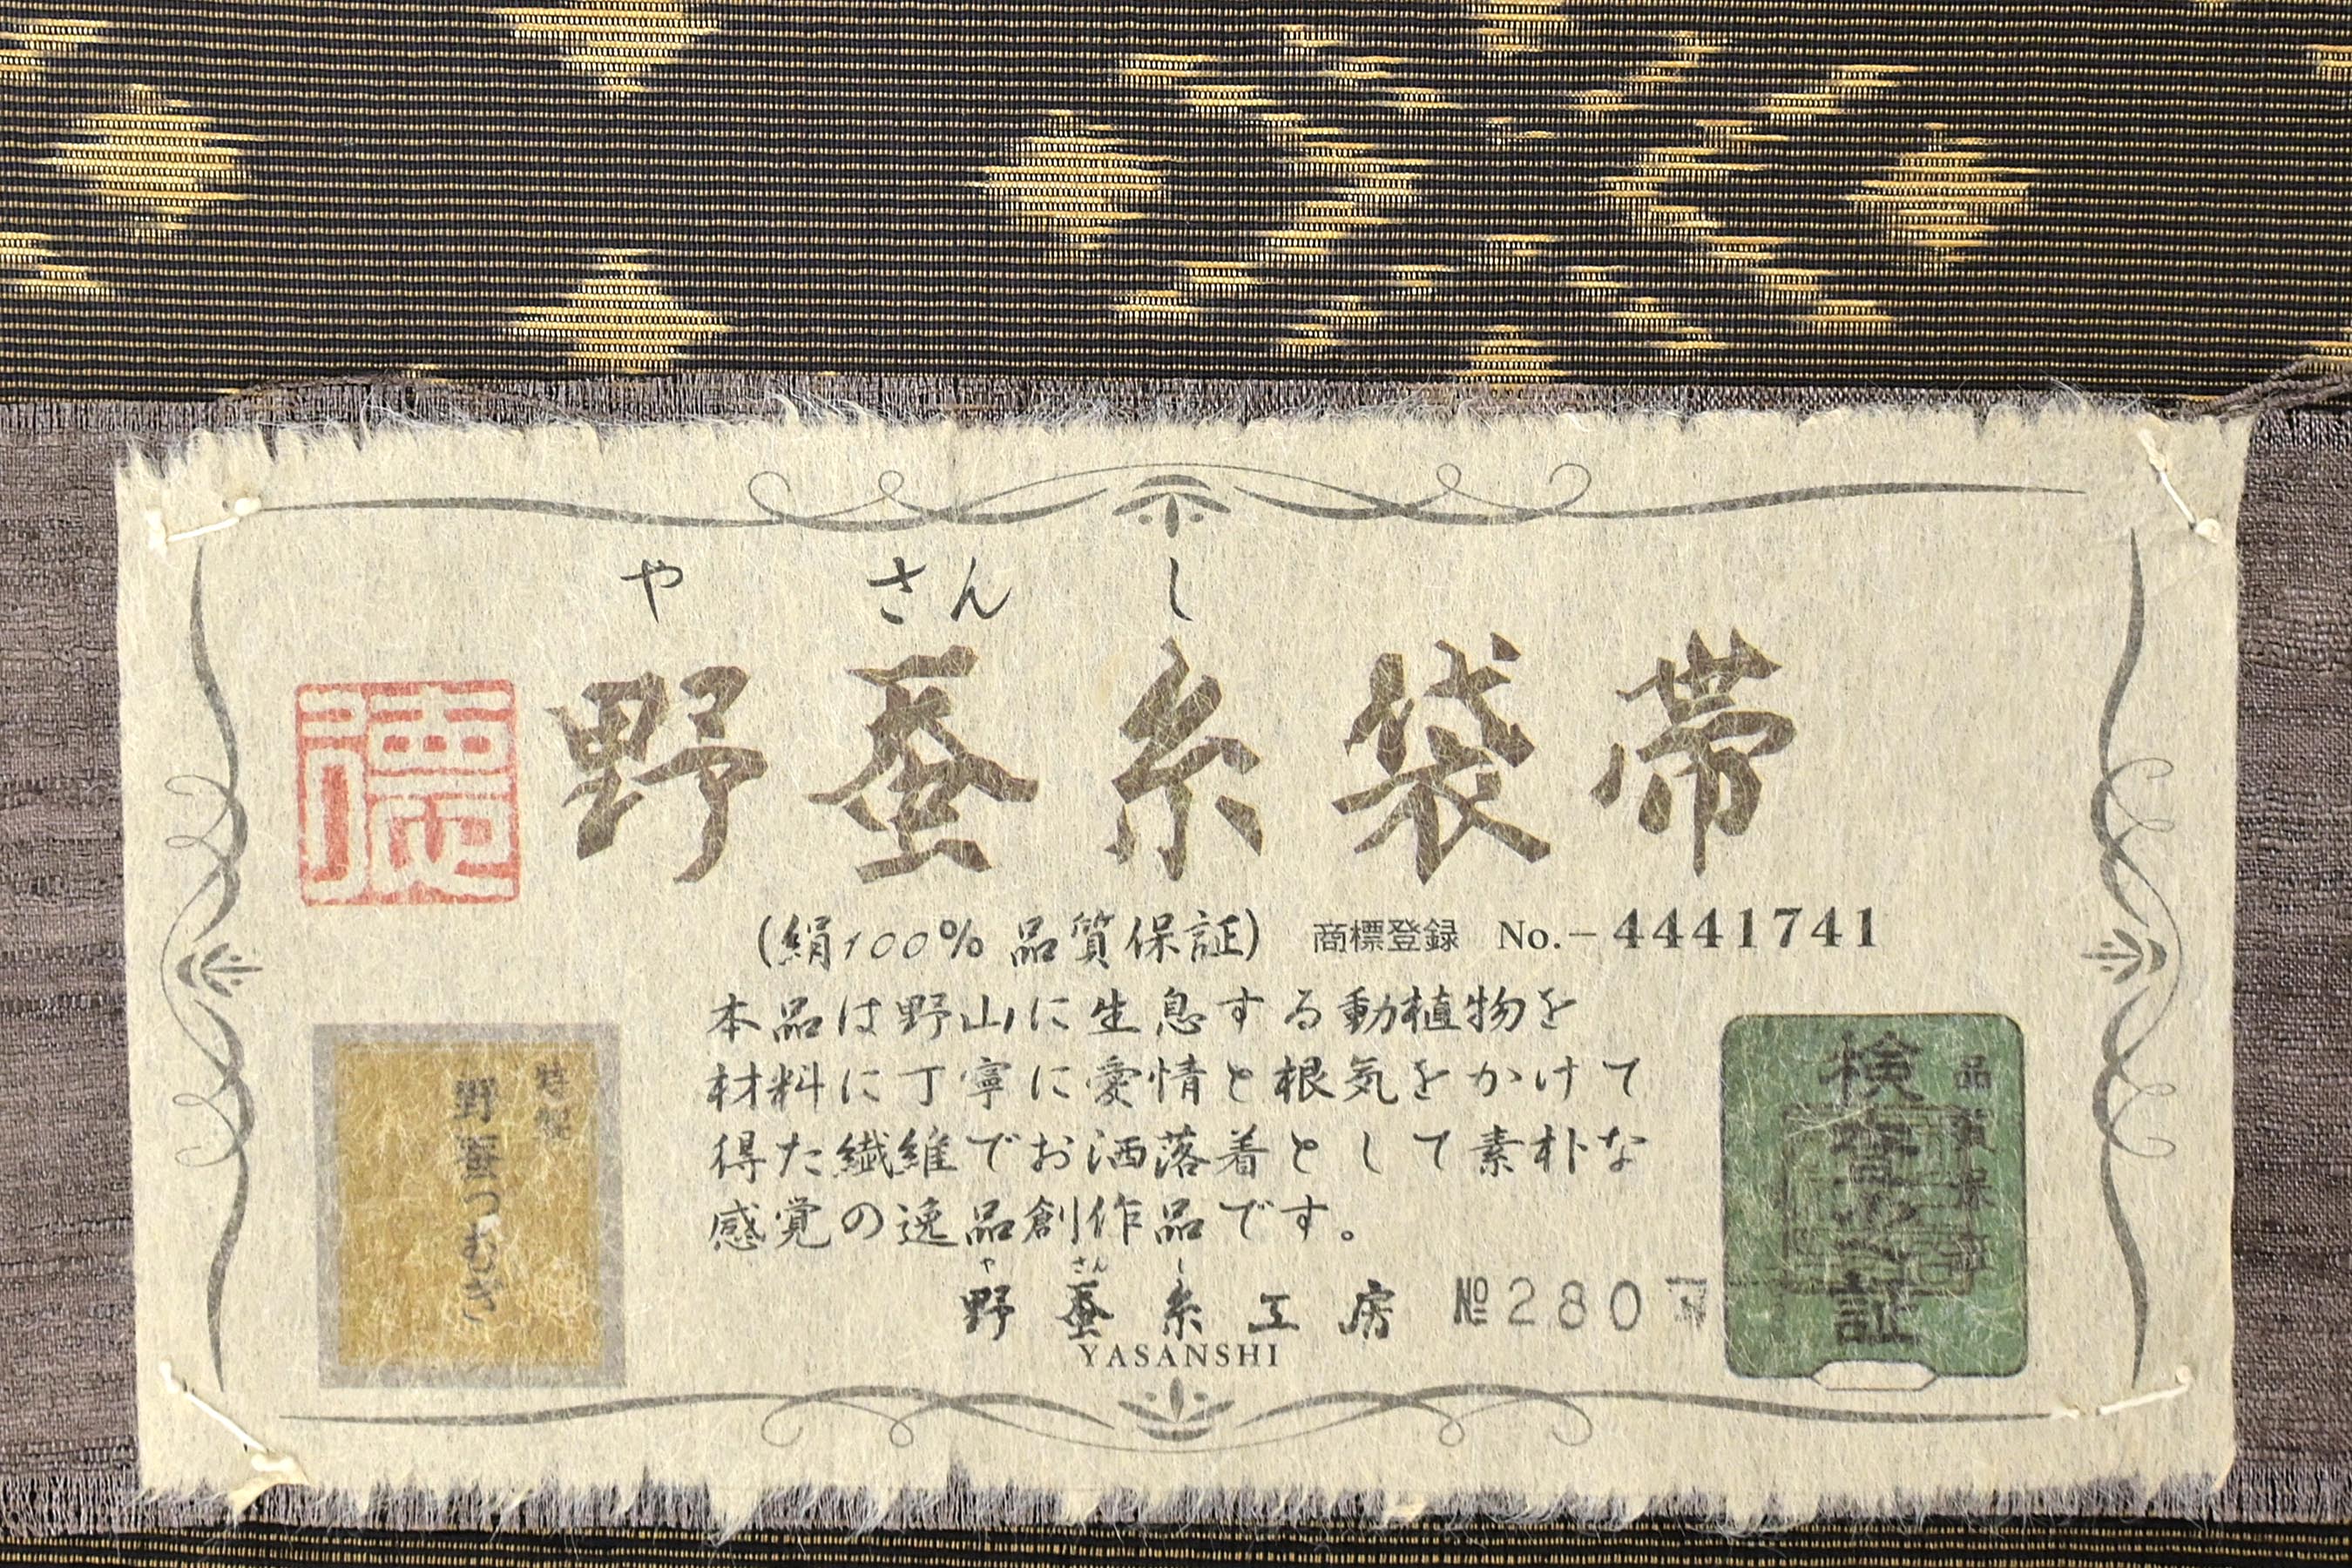 や さん し
野蚕糸袋帯
(絹100% 品質保証) 商標登録 No.-4441741
本品は野山に生息する動植物を
材料に丁寧に愛情と根気をかけて
得た繊維でお洒落着として素朴な
感覚の逸品創作品です。
や さん し
野蚕糸工房 №280
YASANSHI
特製
野蚕つむぎ
品質保証
検査之証